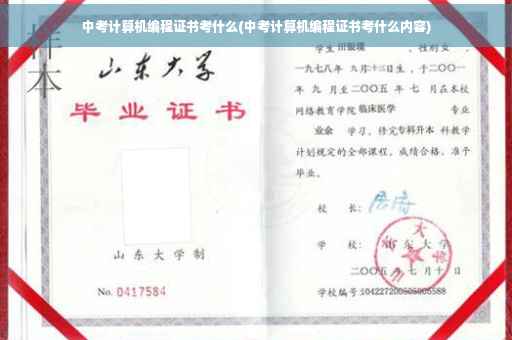 中考计算机编程证书考什么(中考计算机编程证书考什么内容)
样本
山东大学
毕业证书
山东大学制
No. 0417584
学生 田银瑞 ，性别 女 ，
一九七八年 九月十三日生，于二〇〇一
年 九 月至二〇〇五 年 七 月在本校
网络教育学院 临床医学 专业
业余 学习，修完专科升本 科教学
计划规定的全部课程，成绩合格，准予
毕业。
校 长：
学 校：山东大学
二〇〇五 年 七 月 十 日
学校编号：104227200505005588